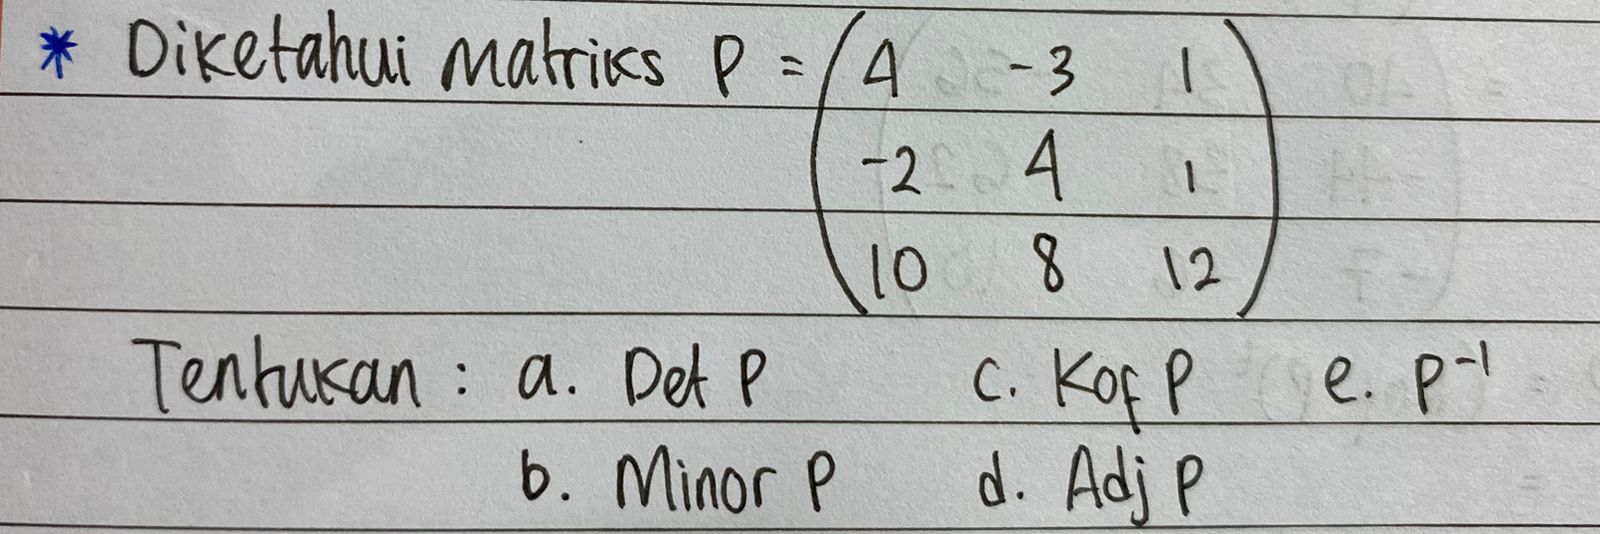 * Diketahui Matriks P = ( 4 -3 1
-2 4 1
10 8 12 )
Tentukan : a. Det P c. Kof P e. P⁻¹
b. Minor P d. Adj P